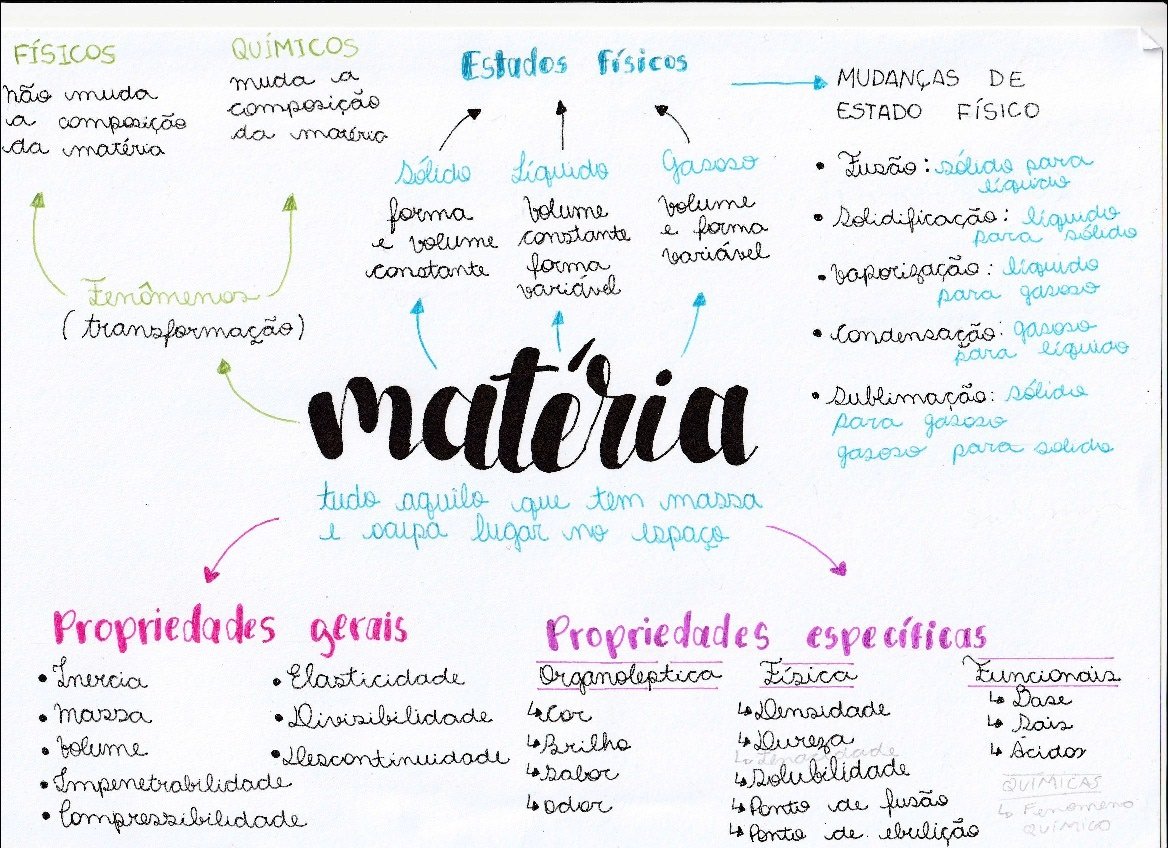 FÍSICOS
não muda
a composição
da matéria
QUÍMICOS
muda a
composição
da matéria
Fenômenos
(transformação)
Estados Físicos
Sólido
forma
e volume
constante
Líquido
volume
constante
forma
variável
Gasoso
volume
e forma
variável
MUDANÇAS DE
ESTADO FÍSICO
• Fusão: sólido para
líquido
• Solidificação: líquido
para sólido
• Vaporização: líquido
para gasoso
• Condensação: gasoso
para líquido
• Sublimação: sólido
para gasoso
gasoso para solido
matéria
tudo aquilo que tem massa
e ocupa lugar no espaço
Propriedades gerais
• Inercia
• Massa
• Volume
• Impenetrabilidade
• Compressibilidade
• Elasticidade
• Divisibilidade
• Descontinuidade
Propriedades específicas
Organoleptica
↳ Cor
↳ Brilho
↳ Sabor
↳ Odor
Física
↳ Densidade
↳ Dureza
↳ Tenacidade
↳ Solubilidade
↳ Ponto de fusão
↳ Ponto de ebulição
Funcionais
↳ Base
↳ Sais
↳ Ácidos
QUÍMICAS
↳ Fenomeno
QUÍMICO